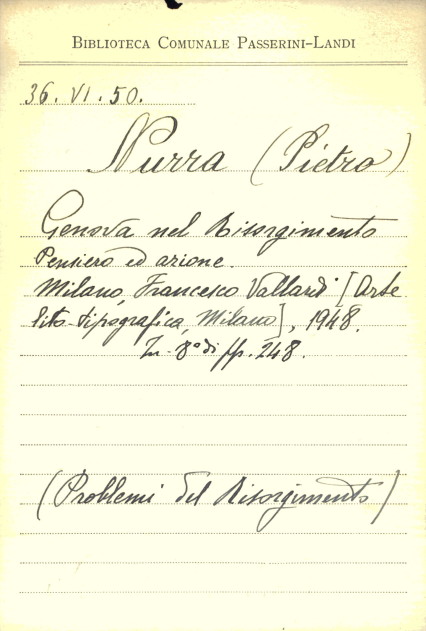 BIBLIOTECA COMUNALE PASSERINI-LANDI
36. VI. 50.
Nurra (Pietro)
Genova nel Risorgimento
Pensiero ed azione.
Milano, Francesco Vallardi [Arte
lito-tipografica, Milano], 1948.
In-8° di pp. 248.
(Problemi del Risorgimento)